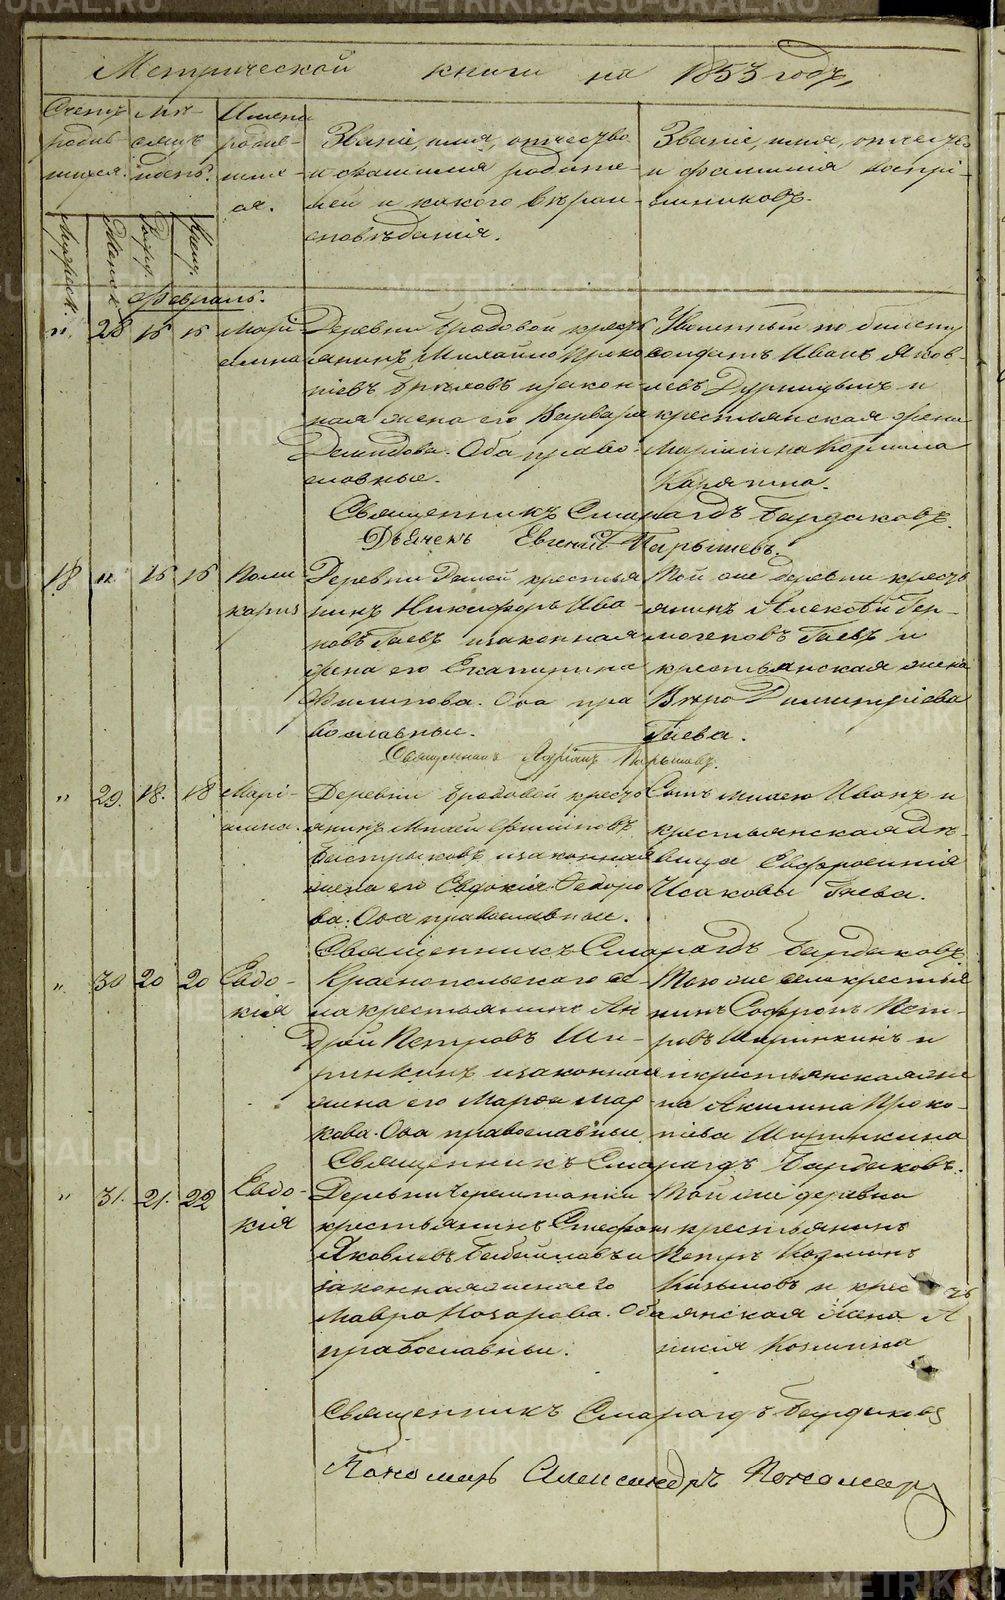 Метрической книги на 1853 годъ,
Счетъ родив-шихся.
Мѣ-сяцъ и день.
Имена родив-шихся.
Званіе, имя, отчество
и фамилія родите-
лей и какого вѣроис-
повѣданія.
Званіе, имя, отчество
и фамилія воспрі-
емниковъ.
Мужеск. Женск. Рожд. Крещ.
Февраль.
" 28 15 15 Марі-амна
Деревни Бродовой кресть
янинъ Михайло Проко
піевъ Бѣловъ изакон-
ная жена его Варвара
Демидова. Оба право-
славные.
Уволенный по билету
солдатъ Иванъ Яков-
левъ и
крестьянская жена
Маріамна Козмина
Священникъ Смарагдъ Бардаковъ.
Дьячекъ Евгеній Парышевъ.
18 " 16 16 Поли-карпъ
Деревни крестья
нинъ Никифоръ Ива-
новъ Гаевъ изаконная
жена его Екатерина
Филипова. Оба пра
вославные.
Той же деревни кресть
янинъ Алексѣй Гер-
могеновъ Гаевъ и
крестьянская жена
Вѣра Димитріева
Гаева.
Священникъ Адріанъ Парышевъ.
" 29. 18. 18 Марі-амна.
Деревни Бродовой кресть
янинъ
Быстрыховъ изаконная
жена его Евдокія Федоро
ва. Оба православные.
Сынъ Иванъ и
крестьянская дѣ-
вица Евфросинія
Исакова Гаева.
Священникъ Смарагдъ Бардаковъ.
" 30 20 20 Евдо-кія
Краснопольского се-
ла крестьянинъ Ан
дрей Петровъ Ши-
ринкинъ изаконная
жена его Марфа Мар-
кова. Оба православные
Того же села крестья
нинъ Софронъ Пет-
ровъ Ширинкинъ и
крестьянская же
на Акилина Проко-
піева Ширинкина
Священникъ Смарагдъ Бардаковъ.
" 31. 21. 22 Евдо-кія
Деревни Черемшанки
крестьянинъ Стефанъ
Яковлевъ и
законная жена его
Мавра Назарова. Оба
православные.
Той же деревни
крестьянинъ
Петръ Козминъ
и крес ть
янская жена А
нисія Козмина
Священникъ Смарагдъ Бардаковъ
Пономарь Александръ Пономар
METRIKI.GASO-URAL.RU